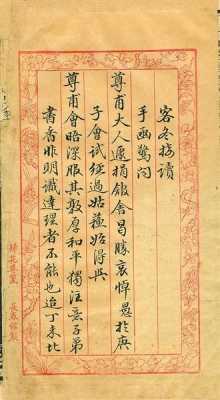 客冬接讀
手函驚聞
尊甫大人遽捐館舍曷勝哀悼愚於庚
子會試經過姑蘇始得與
尊甫會晤深服其敦厚和平獨注意子弟
書香非明識達理者不能也迨丁未北